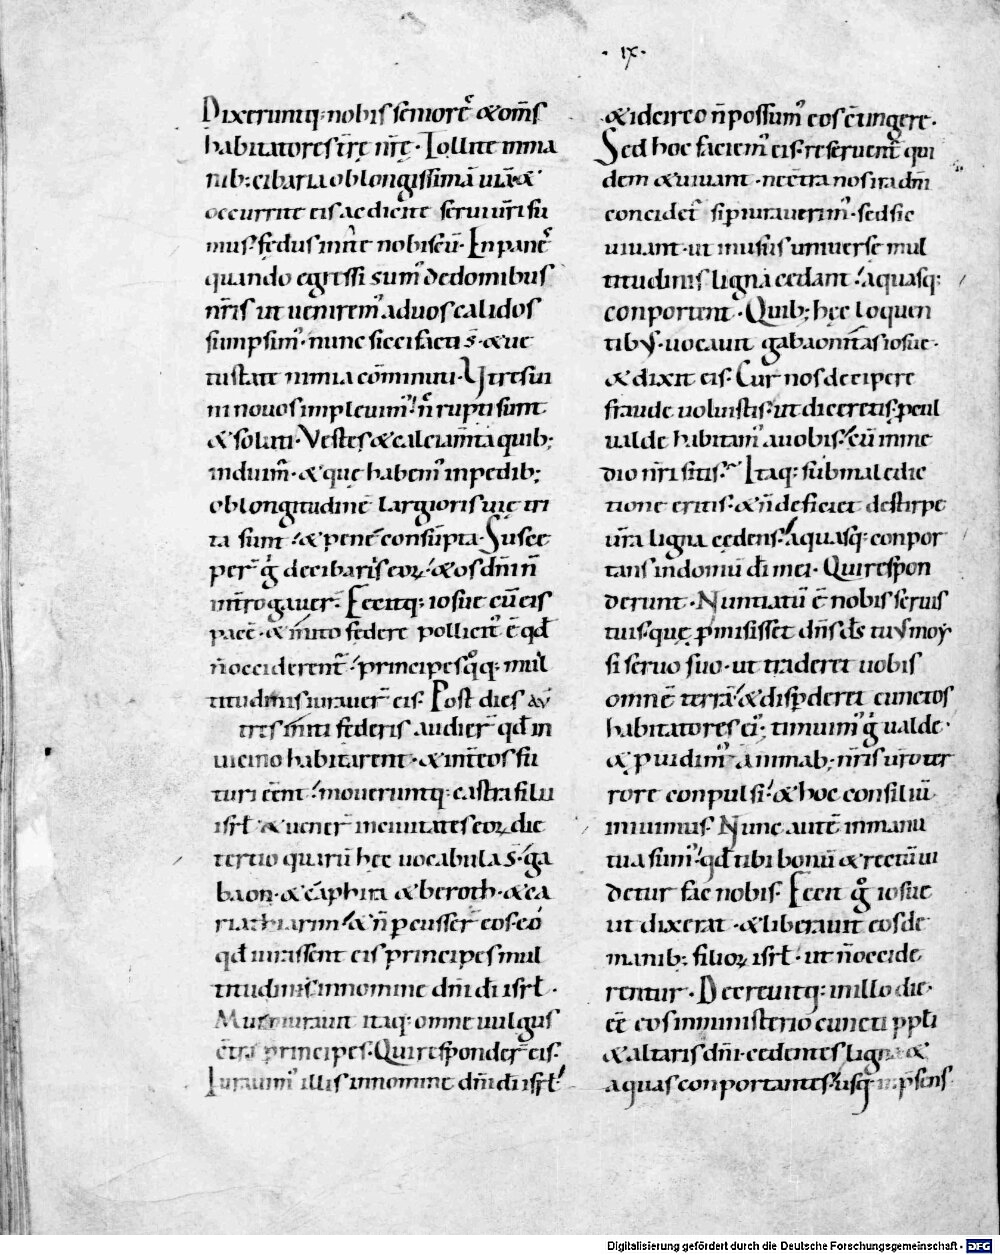 · ix ·
Dixeruntq: nobis seniorē & om̄s
habitatores tr̄ę nr̄ę · Tollite inma
nib; cibaria oblongissimā uiā · &
occurrite eis ac dicite serui ur̄i su
mus · fędus inite nobiscū · En panes
quando egressi sum᾽ dedomibus
nr̄is ut uenirem᾽ aduos calidos
sumpsim᾽ · nunc sicci facti s̄ · & ue
tustate nimia cōminuti · Vtres ui
ni nouos impleuim᾽ · n̄c rupti sunt
& soluti · Vestes & calciam̄ta quib;
induim᾽ · & quę habem᾽ inpedib;
oblongitudinē largioris uię tri
ta sunt · & penē consūpta · Suscę
per̄ g᾽ decibariis eoꝝ · & os dn̄i n̄
int̄rogauer̄ · Fecitq: iosue cū eis
pacē · & inito fędere pollicit᾽ ē qđ
n̄ occiderent᾽ · principes qͦq: mul
titudinis iurauer̄ eis · Post dies aū
tres initi fęderis audier̄ qđ in
uicino habitarent · & int̄ eos fu
turi eēnt · moueruntq: castra filii
isrł · & uener̄ inciuitates eoꝝ die
tertio quarū hęc uocabula s̄ · ga
baon · & caphira & beroth · & ca
riathiarim · & n̄ pcusser̄ eos · eo
qđ iurassent eis principes mul
titudinis innomine dn̄i dī isrł ·
Murmurauit itaq: omne uulgus
cōtra principes · Qui responder̄ eis ·
Iurauim᾽ illis innomine dn̄i dī isrł
& idcirco n̄ possum᾽ eos cōtingere ·
Sed hoc faciem᾽ eis · reseruent᾽ qui
dem & uiuant · ne cōtra nos ira dn̄i
concidet᾽ si piurauerim᾽ · sed sic
uiuant · ut inusus uniuersę mul
titudinis ligna cedant · aquasq:
conportent · Quib; hęc loquen
tibus · uocauit gabaonitas iosue ·
& dixit eis · Cur nos decipere
fraude uoluistis · ut diceretis · pcul
ualde habitam᾽ auobis · cū inme
dio nr̄i sitis · Itaq: sub maledic
tione eritis · & n̄ deficiet destirpe
ur̄a ligna cędens · aquasq: conpor
tans indomū dī mei · Qui respon
derunt · Nuntiatū ē nobis seruis
tuis · quę pmisisset dn̄s ds̄ tuus moysi
si seruo suo · ut traderet uobis
omnē terrā · & dispderet cunctos
habitatores ei᾽ · timuim᾽ g᾽ ualde ·
& puidim᾽ animab; nr̄is ur̄o ter
rore conpulsi · & hoc consiliū
iniuimus · Nunc autē inmanu
tua sum᾽ · qđ tibi bonū & rectū ui
detur fac nobis · Fecit gͦ iosue
ut dixerat · & liberauit eos de
manib; filioꝝ isrł · ut n̄ occide
rentur · Decreuitq: inillo die ·
eē eos inministerio cuncti ppłi
& altaris dn̄i · cedentes ligna &
aquas conportantes · usq: inp̄sens
Digitalisierung gefördert durch die Deutsche Forschungsgemeinschaft - DFG